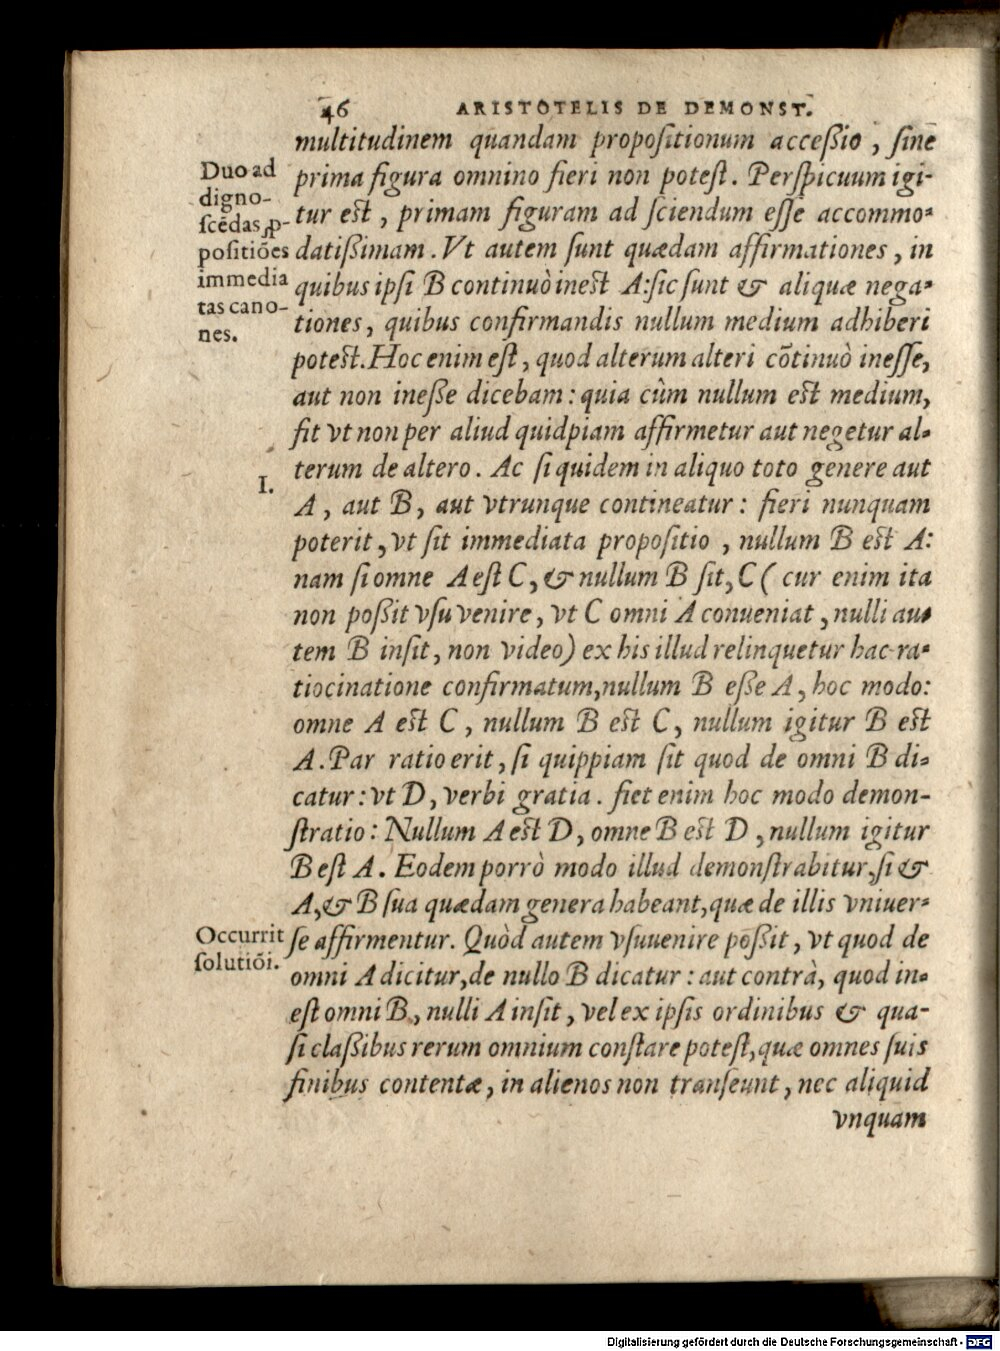 46 ARISTOTELIS DE DEMONST.
multitudinem quandam propositionum acceßio, sine
prima figura omnino fieri non potest. Perspicuum igi-
tur est, primam figuram ad sciendum esse accommo-
datißimam. Vt autem sunt quædam affirmationes, in
quibus ipsi B continuò inest A: sic sunt & aliquæ nega-
tiones, quibus confirmandis nullum medium adhiberi
potest. Hoc enim est, quod alterum alteri cõtinuò inesse,
aut non ineße dicebam: quia cùm nullum est medium,
fit vt non per aliud quidpiam affirmetur aut negetur al-
terum de altero. Ac si quidem in aliquo toto genere aut
A, aut B, aut vtrunque contineatur: fieri nunquam
poterit, vt sit immediata propositio, nullum B est A:
nam si omne A est C, & nullum B sit, C (cur enim ita
non poßit vsu venire, vt C omni A conueniat, nulli au-
tem B insit, non video) ex his illud relinquetur hac ra-
tiocinatione confirmatum, nullum B eße A, hoc modo:
omne A est C, nullum B est C, nullum igitur B est
A. Par ratio erit, si quippiam sit quod de omni B di-
catur: vt D, verbi gratia. fiet enim hoc modo demon-
stratio: Nullum A est D, omne B est D, nullum igitur
B est A. Eodem porrò modo illud demonstrabitur, si &
A, & B sua quædam genera habeant, quæ de illis vniuer-
se affirmentur. Quòd autem vsuuenire poßit, vt quod de
omni A dicitur, de nullo B dicatur: aut contrà, quod in-
est omni B, nulli A insit, vel ex ipsis ordinibus & qua-
si claßibus rerum omnium constare potest, quæ omnes suis
finibus contentæ, in alienos non transeunt, nec aliquid
vnquam
Duo ad
digno-
scẽdas ꝓ-
positiões
immedia
tas cano-
nes.
I.
Occurrit
solutiõi.
Digitalisierung gefördert durch die Deutsche Forschungsgemeinschaft - DFG